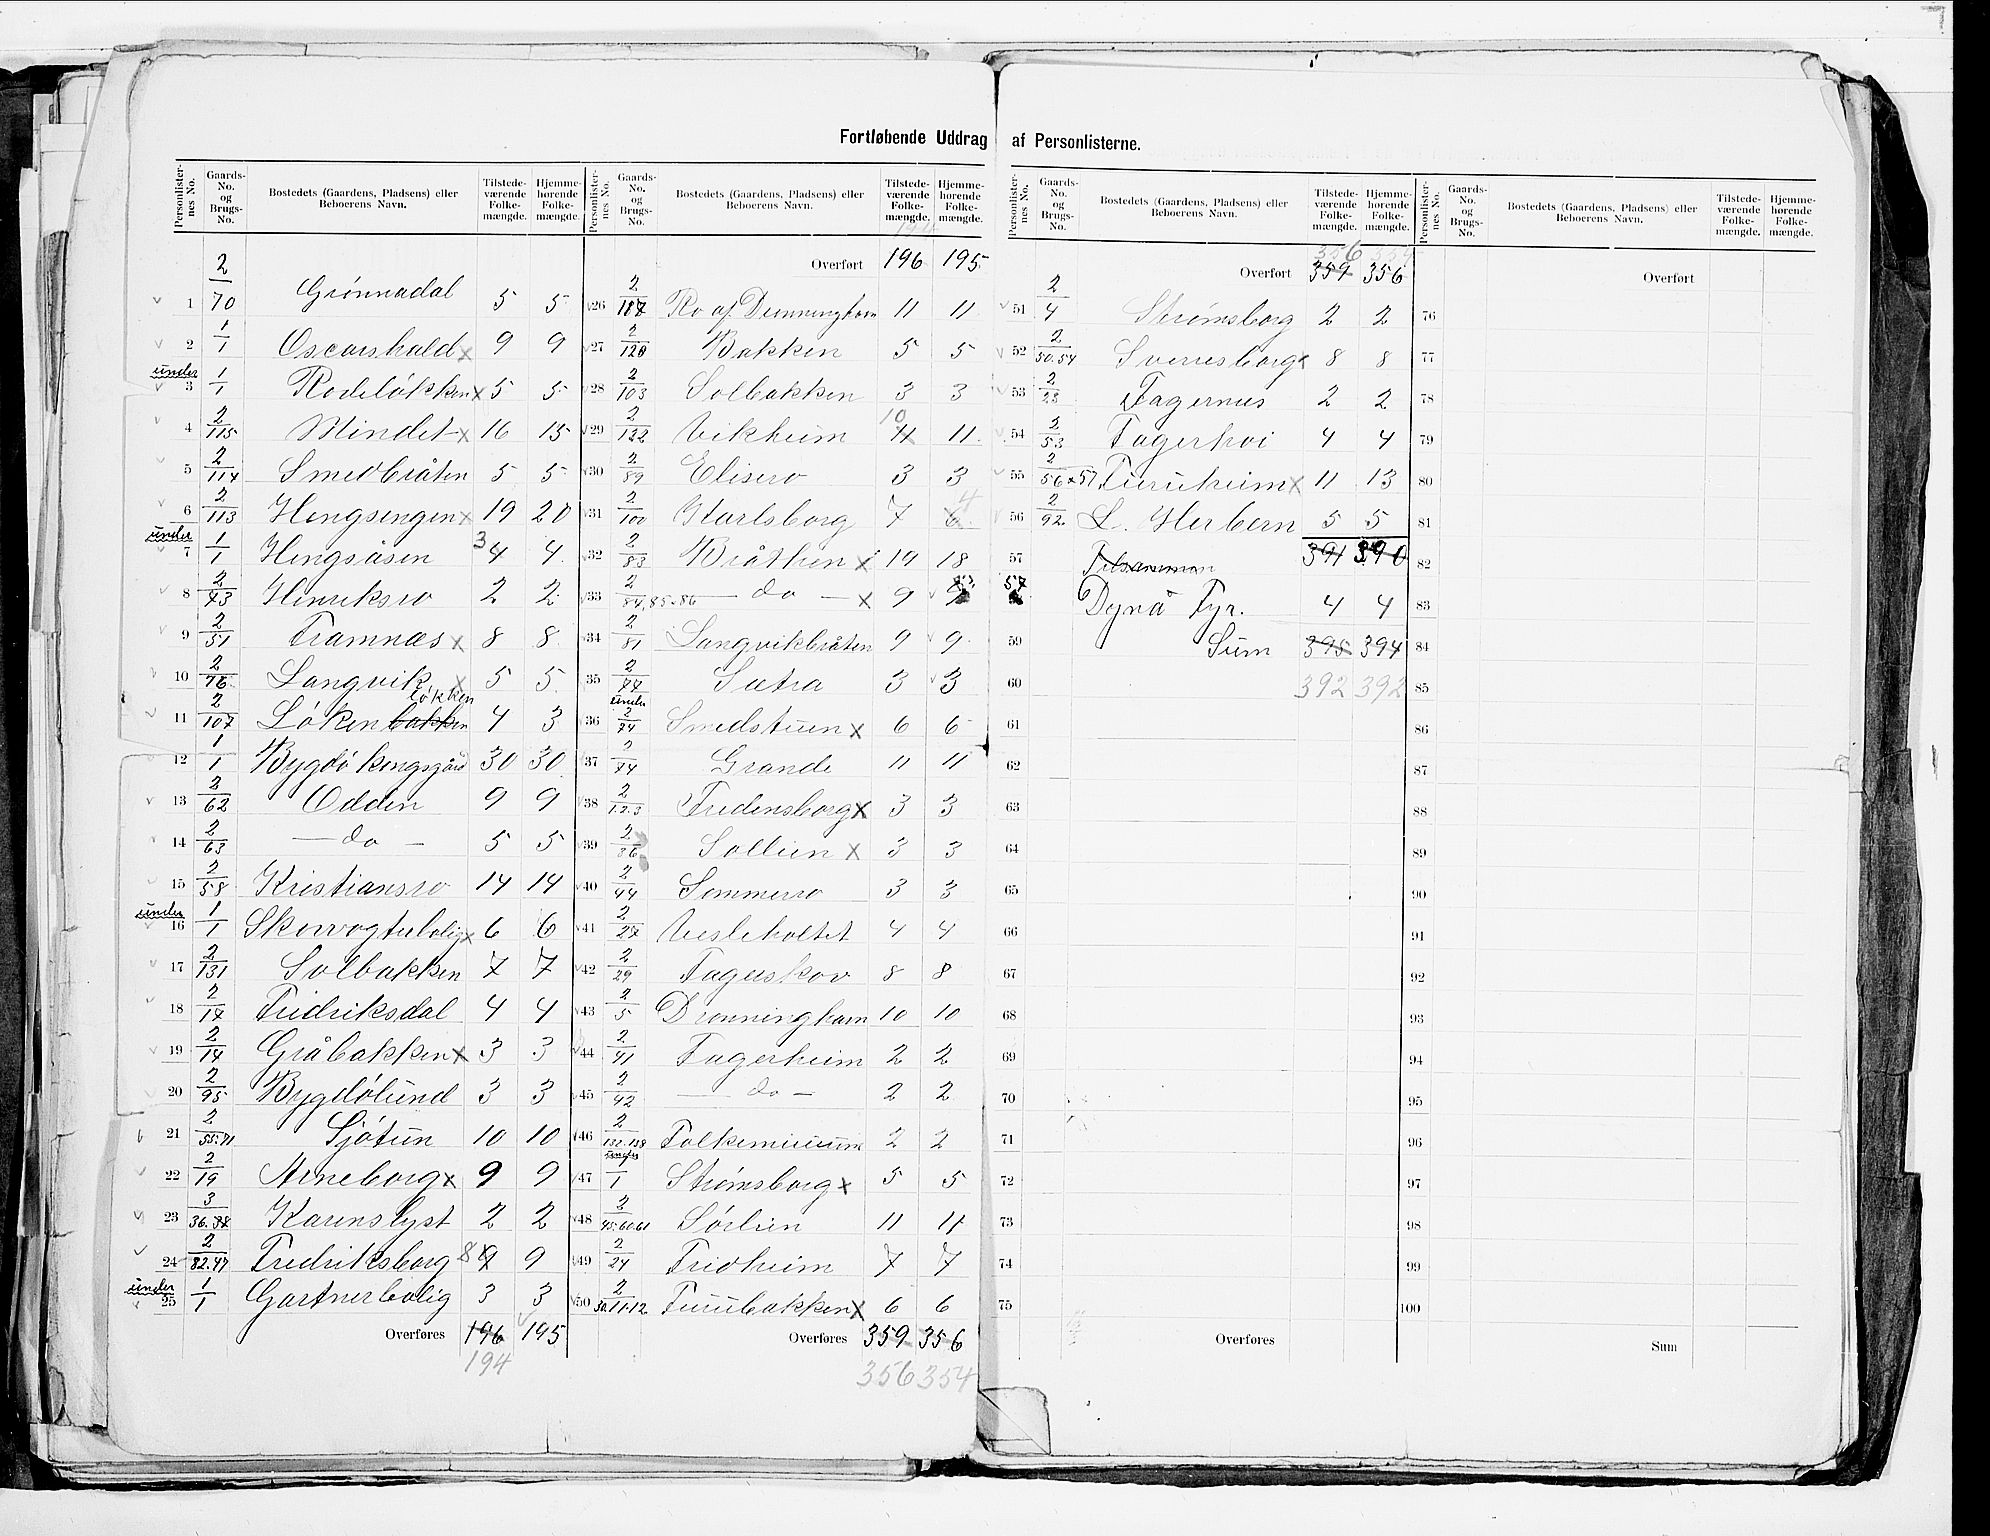 Fortløbende Uddrag af Personlisterne.
Personlister-nes No. | Gaards-No. og Brugs-No. | Bostedets (Gaardens, Pladsens) eller Beboerens Navn. | Tilstede-værende Folke-mængde. | Hjemme-hørende Folke-mængde.
1 2/70 Grønnadal 5 5
2 1/1 Oscarshald x 9 9
under 3 1/1 Rodeløkken x 5 5
4 2/115 Mindet x 16 15
5 2/114 Smedbråten 5 5
6 2/113 Hengsengen x 19 20
under 7 1/1 Hengsåsen 3 4 4
8 2/73 Henriksro 2 2
9 2/51 Framnæs x 8 8
10 2/76 Langvik x 5 5
11 2/107 Løkenbakken løkken 4 3
12 1/1 Bygdö kongsgård 30 30
13 2/62 Odden 9 9
14 2/63 — do — 5 5
15 2/58 Kristiansro 14 14
under 16 1/1 Skovvogterbolig x 6 6
17 2/131 Solbakken 7 7
18 2/17 Fredriksdal 4 4
19 2/14 Gråbakken x 3 3
20 2/95 Bygdölund 3 3
21 2/55.71 Sjötun 10 10
22 2/19 Arneborg x 9 9
23 3/36.37 Karenslyst 2 2
24 2/82.47 Fredriksborg 8 9 9
under 25 1/1 Gartnerbolig 3 3
Overføres 196 195
194
Personlister-nes No. | Gaards-No. og Brugs-No. | Bostedets (Gaardens, Pladsens) eller Beboerens Navn. | Tilstede-værende Folke-mængde. | Hjemme-hørende Folke-mængde.
194
Overført 196 195
26 2/187 Ro af Dronninghavn 11 11
27 2/120 Bakken 5 5
28 2/103 Solbakken 3 3
29 2/122 Vikheim 10 11 11
30 2/89 Elisero 3 3
31 2/100 Karlsborg 7 6 4
32 2/83 Bråthen x 19 18
33 2/84,85-86 — do — x 9 9
34 2/81 Langvikbråten 9 9
35 2/77 Sætra 3 3
36 under 2/74 Smedstuen x 6 6
37 2/74 Grande 11 11
38 2/1.2.3 Fredensborg x 3 3
39 2/36 Sollien x 3 3
40 2/44 Sommerro 3 3
41 2/27 Vesleholtet 4 4
42 2/29 Fagerskov 8 8
43 2/5 Dronninghavn 10 10
44 2/41 Fagerheim 2 2
45 2/42 — do — 2 2
46 2/132.138 Folkemuseum 2 2
47 under 1/1 Strømsborg x 5 5
48 2/45.60.61 Sørlien 11 11
49 2/24 Fridheim 7 7
50 2/30.11.12 Furubakken x 6 6
Overføres 359 356
356 354
Personlister-nes No. | Gaards-No. og Brugs-No. | Bostedets (Gaardens, Pladsens) eller Beboerens Navn. | Tilstede-værende Folke-mængde. | Hjemme-hørende Folke-mængde.
356 354
Overført 359 356
51 2/4 Strømsborg 2 2
52 2/50.54 Sverresborg x 8 8
53 2/23 Fagernæs 2 2
54 2/53 Fagerhøi 4 4
55 2/56x57 Furuheim x 11 13
56 2/92 L. Herbern 5 5
57 Tilsammen 391 390
57 Dynå Fyr. 4 4
59 Sum 395 394
60 392 392
61
62
63
64
65
66
67
68
69
70
71
72
73
74
75
Overføres
Personlister-nes No. | Gaards-No. og Brugs-No. | Bostedets (Gaardens, Pladsens) eller Beboerens Navn. | Tilstede-værende Folke-mængde. | Hjemme-hørende Folke-mængde.
Overført
76
77
78
79
80
81
82
83
84
85
86
87
88
89
90
91
92
93
94
95
96
97
98
99
100
Sum